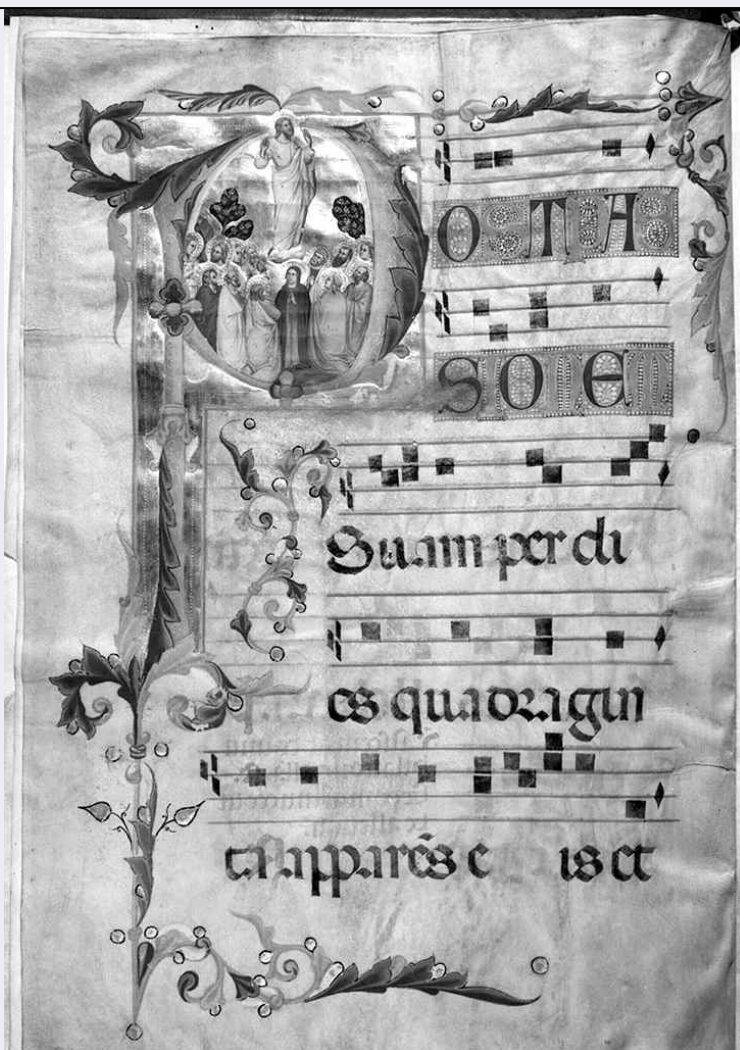 POST PAS
SIONEM
Suam per di
es quadragin
ta apparēs e is et